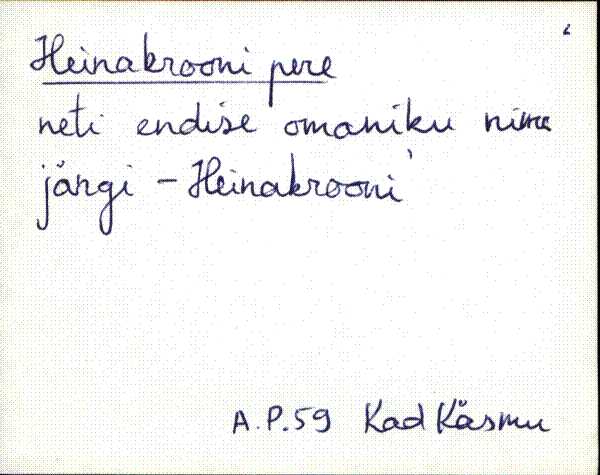 Heinakrooni pere
neti endise omaniku nime
järgi - Heinakrooni'
A.P.59 Kad Käsmu